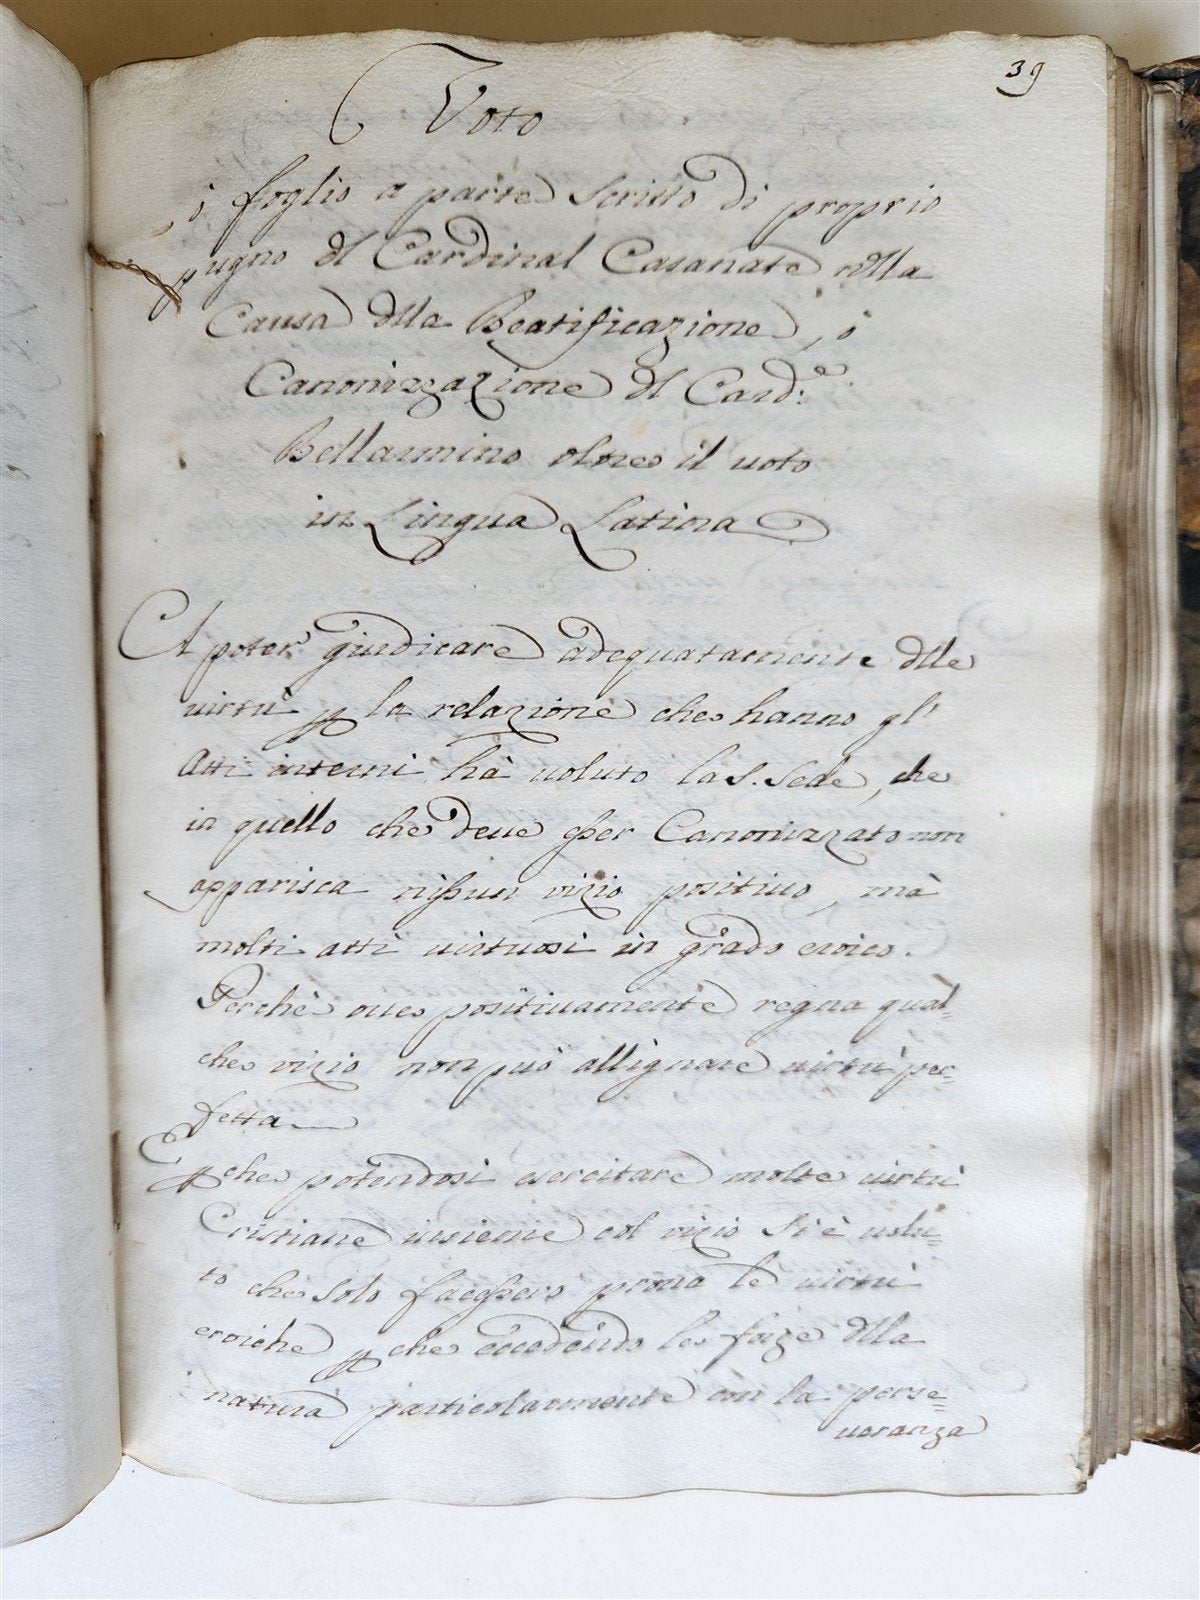 39
Voto
ò foglio a parte scritto di proprio
pugno dl Cardinal Casanate nlla
Causa dlla Beatificazione, ò
Canonizzazione dl Card.e
Bellarmino oltre il voto
in Lingua Latina
A poter giudicare adequatamente dlle
virtù p la relazione che hanno gl'
Atti interni hà voluto la S. Sede, che
in quello che deve esser Canonizzato non
apparisca nissun vizio positivo, mà
molti atti virtuosi in grado eroico.
Perchè ove positivamente regna qual-
che vizio non può allignare virtù per=
fetta
E pche potendosi esercitare molte virtù
Cristiane insieme col vizio si è volu=
to che solo facessero prova le virtù
eroiche pche eccedendo le forze dlla
natura particolarmente con la perse=
veranza